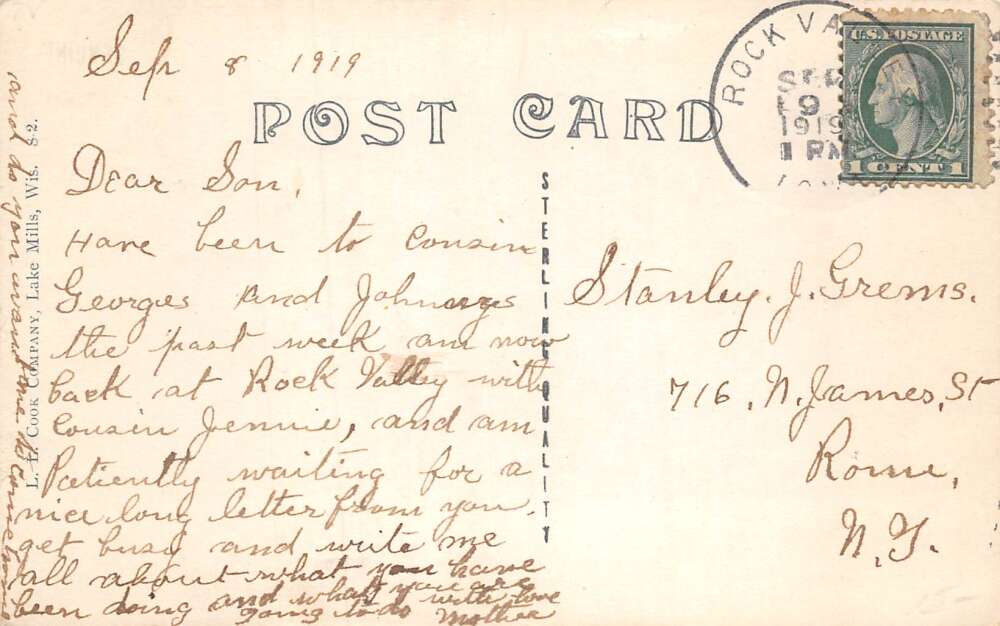 Sep 8 1919
POST CARD
ROCK VA
SEP
9
1919
1 PM
U.S. POSTAGE
1 CENT 1
Dear Son,
Have been to Cousin
Georges and Johnnys
the past week am now
back at Rock Valley with
Cousin Jennie, and am
Patiently waiting for a
nice long letter from you.
get busy and write me
all about what you have
been doing and what you are
going to do with love
Mother
and do you want me to come home
L. L. COOK COMPANY, Lake Mills, Wis. S-2.
STERLING QUALITY
Stanley. J. Grems.
716, N. James, St
Rome,
N. Y.